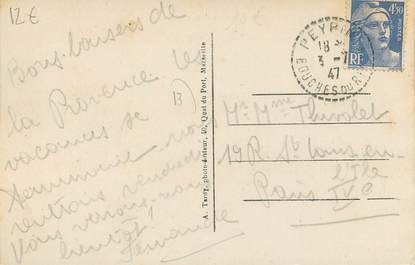 12€
Bons baisers de
la Provence. Les
vacances se
terminent, nous
rentrons vendredi
Vous verrons-nous
bientôt!
Fernande
13
A. Tardy, photo-éditeur, 40, Quai du Port, Marseille
PEYP
18
3 - 7
47
BOUCHES DU R
4f50
POSTES
RF
Mr. Mme Thivolet
19 R. St Louis en
l'Ile
Paris IVe